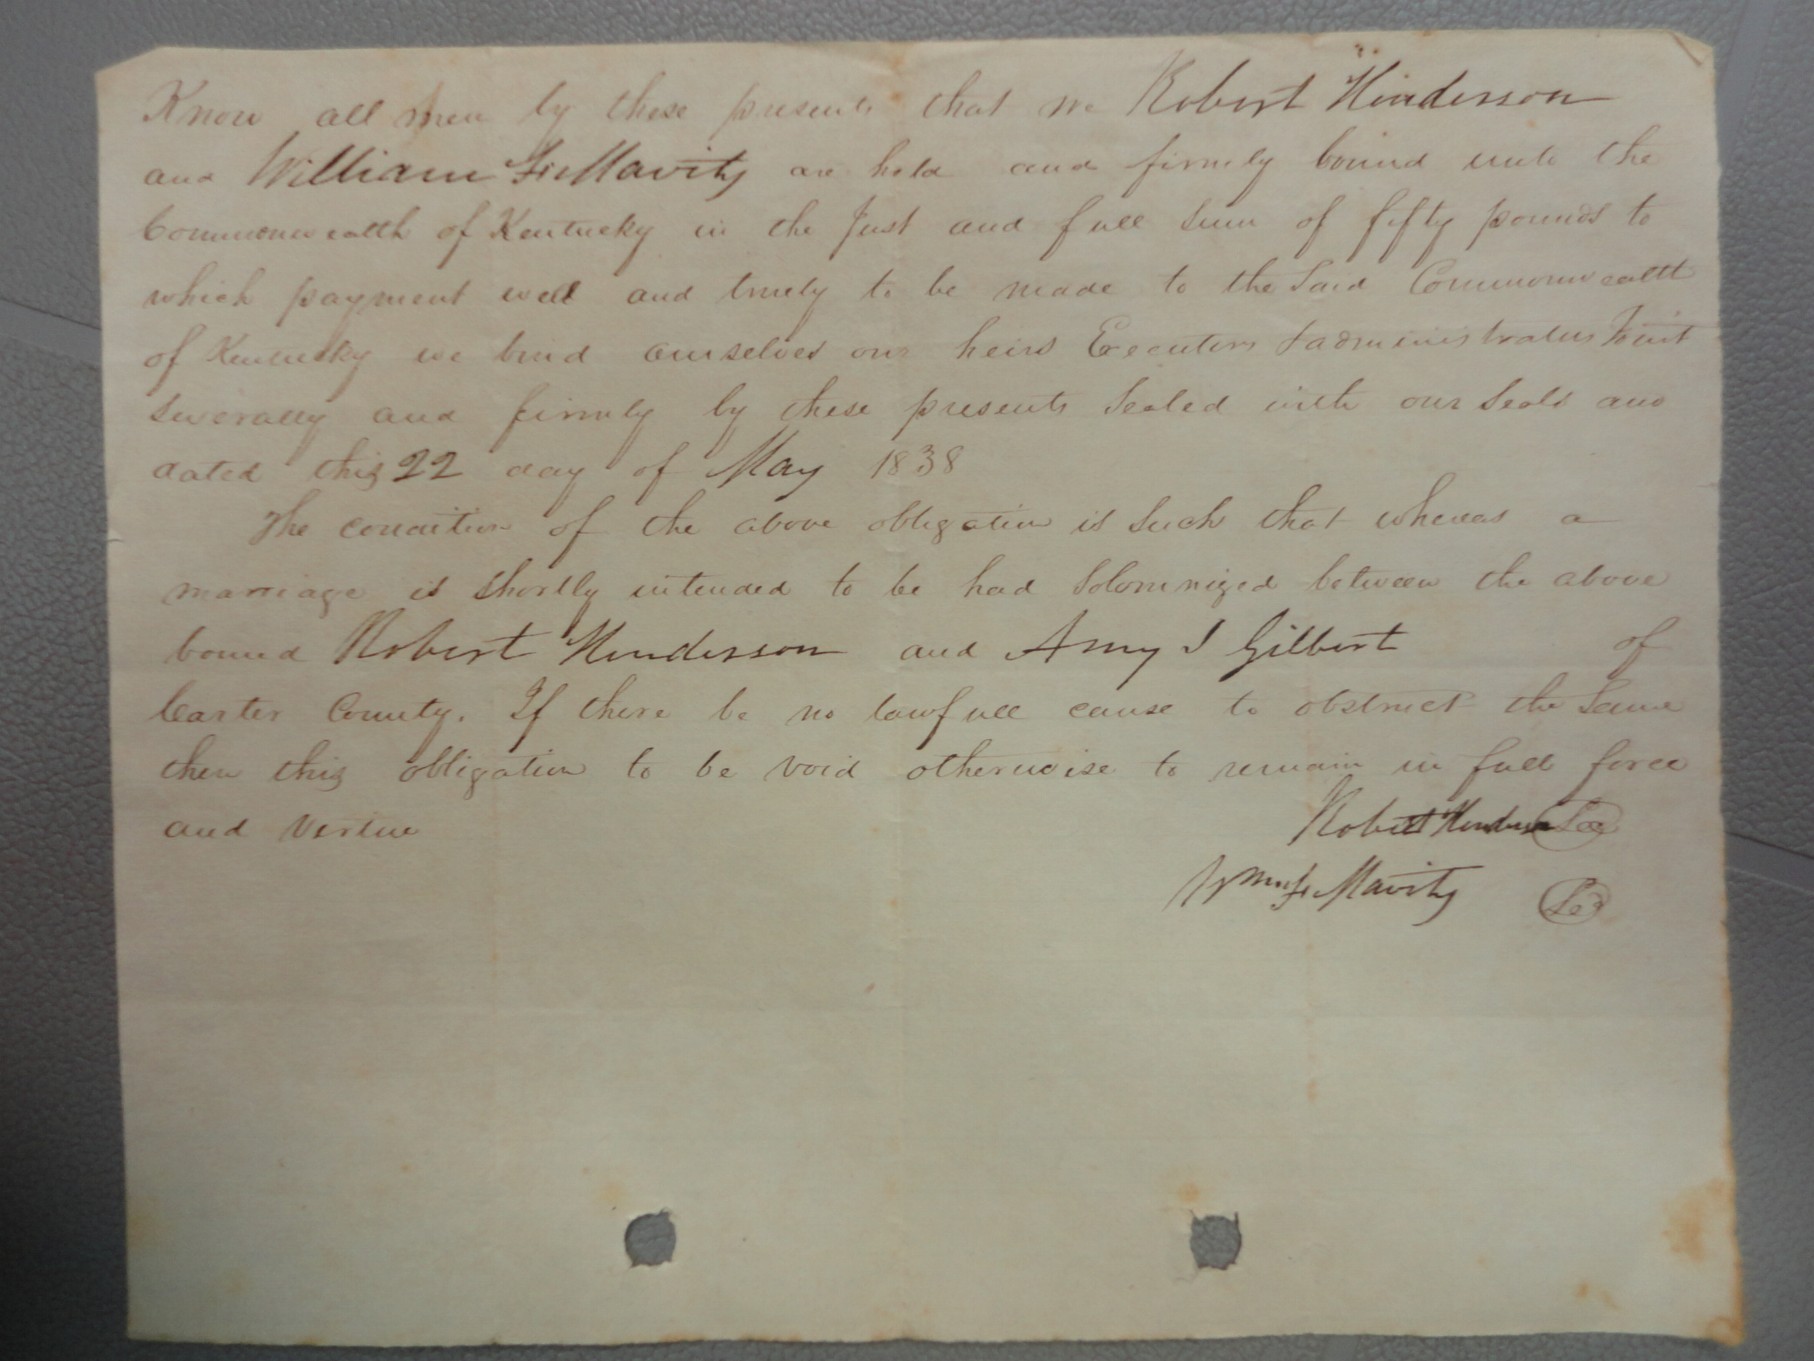 Know all men by these presents that we Robert Henderson
and William F. Mavity are held and firmly bound unto the
Commonwealth of Kentucky in the Just and full Sum of fifty pounds to
which payment well and truely to be made to the Said Commonwealth
of Kentucky we bind ourselves our heirs Executors & administrators Joint
Severally and firmly by these presents Sealed with our Seals and
dated this 22 day of May 1838
The condition of the above obligation is Such that whereas a
marriage is Shortly intended to be had Solomnized between the above
bound Robert Henderson and Amy J Gilbert of
Carter County. If there be no lawfull cause to obstruct the Same
then this obligation to be void otherwise to remain in full force
and Vertue
Robert Henderson
Wm F. Mavity